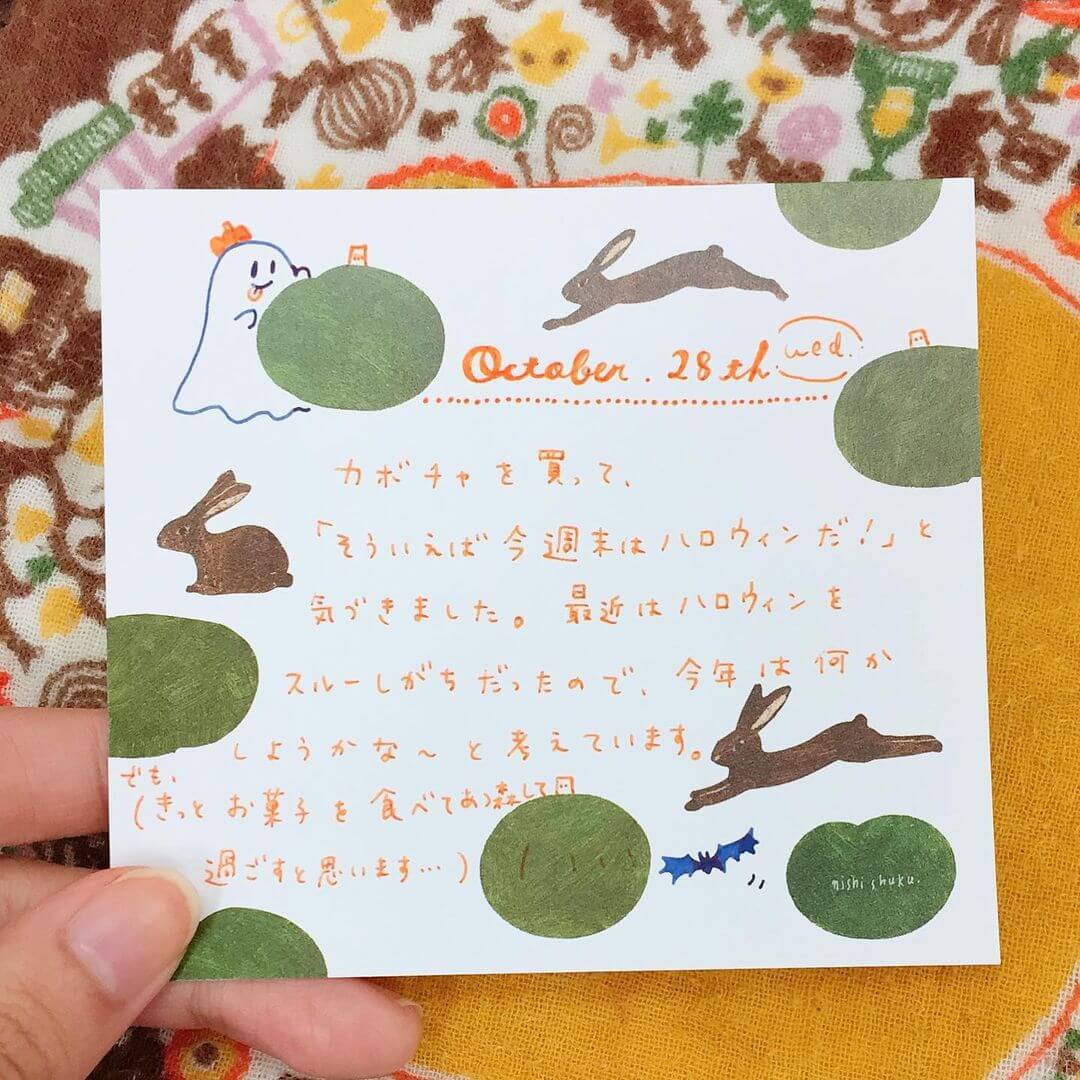 October. 28th wed.
カボチャを買って、
「そういえば今週末はハロウィンだ!」と
気づきました。最近はハロウィンを
スルーしがちだったので、今年は何か
しようかな〜と考えています。
でも、
(きっとお菓子を食べてあつ森して
過ごすと思います…)
nishi shuku.